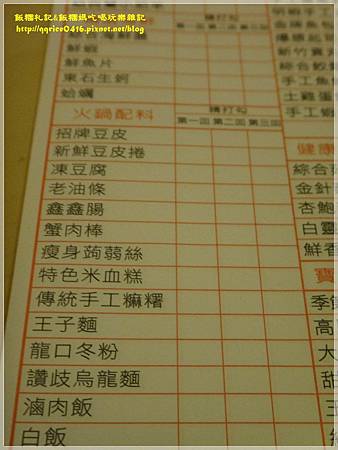 飯糰札記&飯糰媽吃喝玩樂雜記
http://qqrice0416.pixnet.net/blog
第一回 第二回 第三回
鮮蝦
鮮魚片
東石生蚵
蛤蠣
火鍋配料
請打勾
第一回 第二回 第三回
招牌豆皮
新鮮豆皮捲
凍豆腐
老油條
鑫鑫腸
蟹肉棒
瘦身蒟蒻絲
特色米血糕
傳統手工麻糬
王子麵
龍口冬粉
讚歧烏龍麵
滷肉飯
白飯
金牌魚包
爆漿起
新竹貢
綜合餃
手工魚
土雞蛋
手工蝦
健康
綜合
金針
杏鮑
白靈
鮮香
寶
季節
高
大
甜